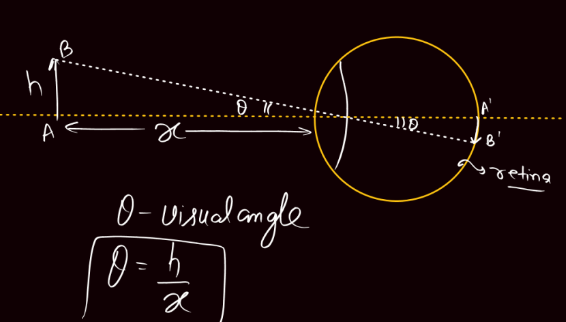 B
h
θ
θ
A'
A
x
B'
retina
θ - visual angle
θ = h/x